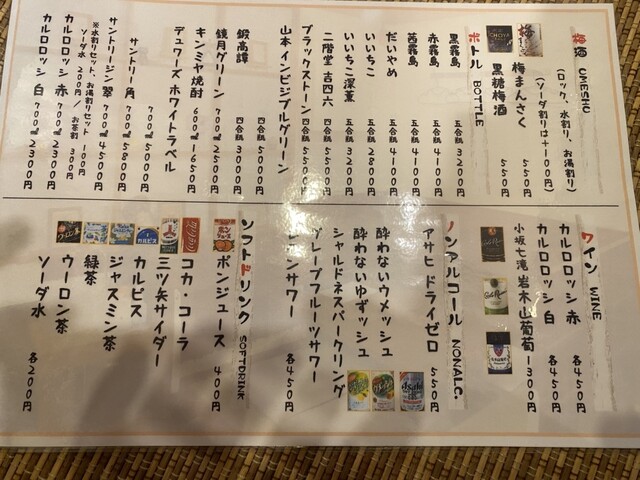 梅酒 UMESHU
(ロック、水割り、お湯割り)
(ソーダ割りは+100円)
梅まんさく 550円
黒糖梅酒 550円
ボトル BOTTLE
黒霧島 五合瓶 3200円
赤霧島 五合瓶 4100円
茜霧島 五合瓶 4100円
だいやめ 五合瓶 4100円
いいちこ 五合瓶 2800円
いいちこ深薫 五合瓶 3200円
二階堂 吉四六 五合瓶 5500円
ブラックストーン 四合瓶 3500円
山本 インビジブルグリーン
四合瓶 5000円
鍛高譚 四合瓶 3000円
鏡月グリーン 700ml 2500円
キンミヤ焼酎 600ml 1650円
デュワーズ ホワイトラベル
700ml 5000円
サントリー 角 700ml 5800円
サントリージン 翠 700ml 4500円
※水割りセット、お湯割りセット 100円
ソーダ水 200円/お茶割 300円
カルロロッシ 赤 700ml 2300円
カルロロッシ 白 700ml 2300円
ワイン WINE
カルロロッシ 赤 450円
カルロロッシ 白 450円
小坂七滝 岩木山葡萄 1300円
ノンアルコール NONALC.
アサヒ ドライゼロ 550円
酔わないウメッシュ
酔わないゆずッシュ
シャルドネスパークリング
グレープフルーツサワー
ンサワー 各450円
ソフトドリンク SOFTDRINK
ポンジュース 400円
コカ・コーラ
三ツ矢サイダー
カルピス
ジャスミン茶
緑茶
ウーロン茶
ソーダ水 各200円